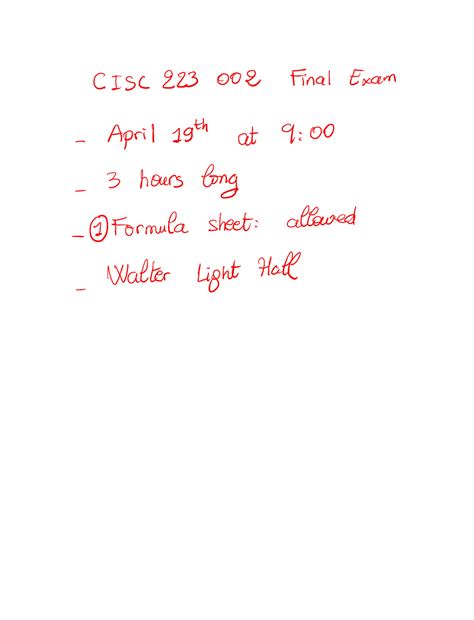 CISC 223 002 Final Exam
- April 19th at 9:00
- 3 hours long
- ① Formula sheet: allowed
- Walter Light Hall